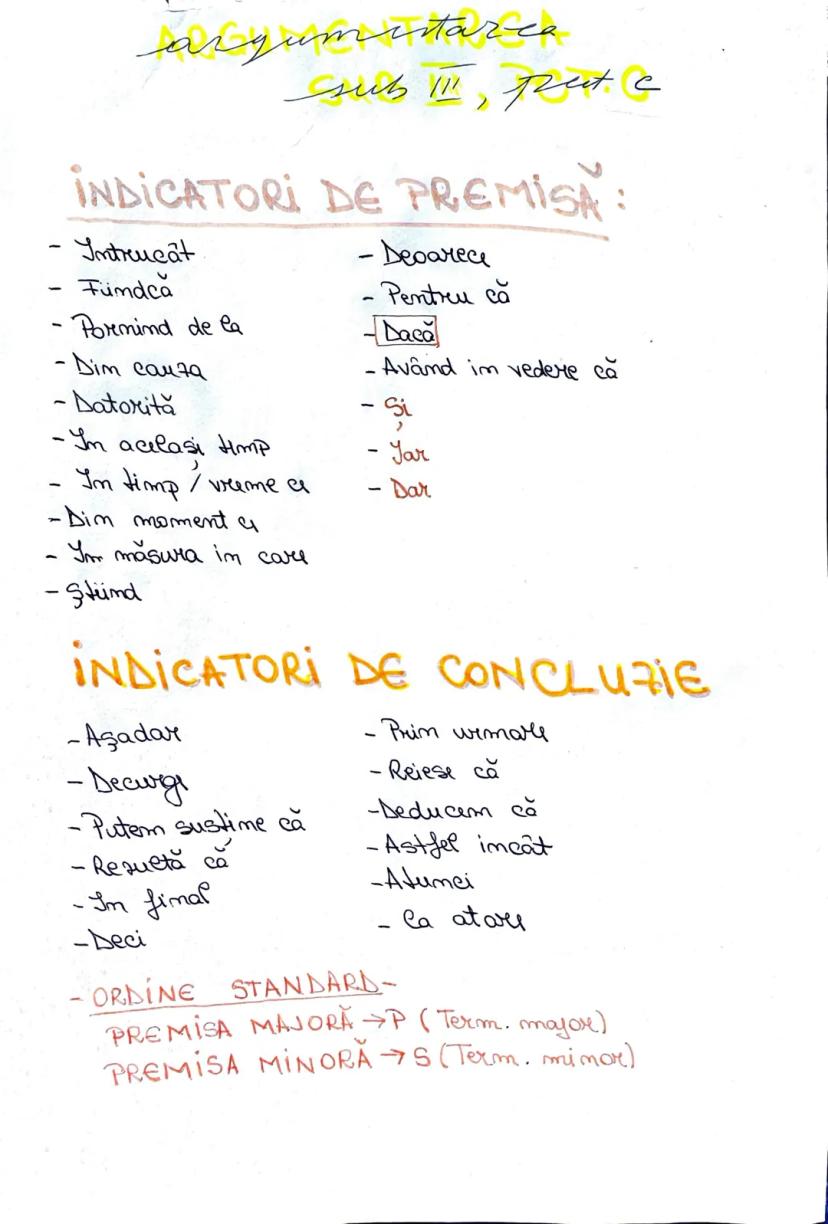 ARGUMENTAREA
argumentarea
SUB III, PCT. C
sub III, pct. c
INDICATORI DE PREMISĂ:
- Întrucât
- Fiindcă
- Pornind de la
- Din cauza
- Datorită
- În același timp
- În timp / vreme ce
- Din moment ce
- În măsura în care
- Știind
- Deoarece
- Pentru că
- Dacă
- Având în vedere că
- Și
- Iar
- Dar
INDICATORI DE CONCLUZIE
- Așadar
- Decurge
- Putem susține că
- Rezultă că
- În final
- Deci
- Prin urmare
- Reiese că
- Deducem că
- Astfel încât
- Atunci
- Ca atare
- ORDINE STANDARD -
PREMISA MAJORĂ → P (Term. major)
PREMISA MINORĂ → S (Term. minor)